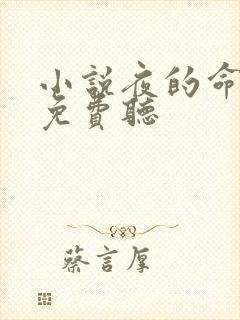 小說夜的命
免費聽
蔡言厚